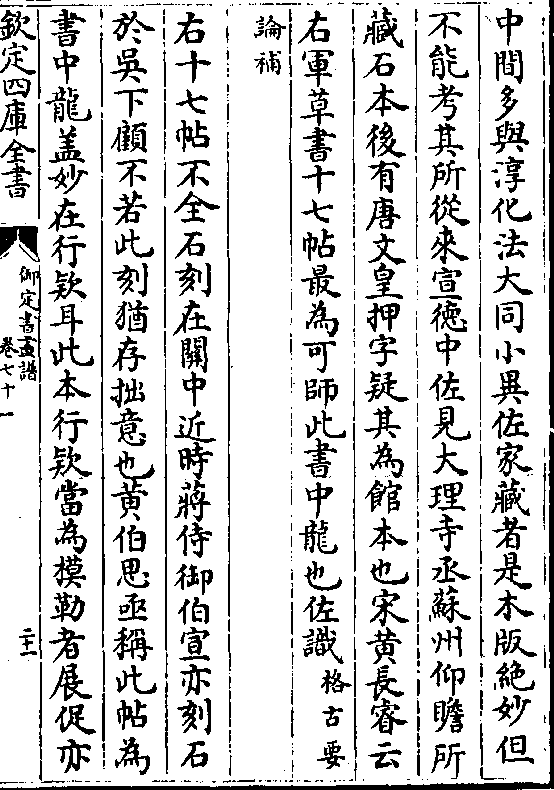 中間多與淳化法大同小異佐家藏者是木版絶妙但
不能考其所從來宣德中佐見大理寺丞蘇州仰瞻所
藏石本後有唐文皇押字疑其為館本也宋黄長睿云
右軍草書十七帖最為可師此書中龍也佐識格古要
論補
右十七帖不全石刻在關中近時蔣侍御伯宣亦刻石
於吳下顧不若此刻猶存拙意也黄伯思亟稱此帖為
書中龍盖妙在行欵耳此本行欵當為模勒者展促亦
欽定四庫全書
御定書畫譜
卷七十一
二十二